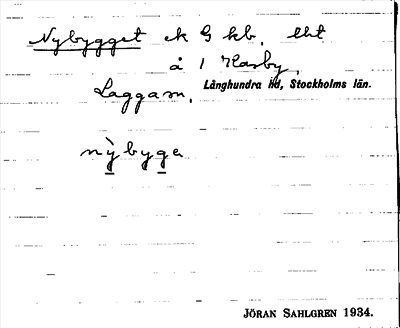 Nybygget ek G kb. lht
å 1 Harby,
Laggam, Långhundra hd, Stockholms län.
nỳbyga
JÖRAN SAHLGREN 1934.